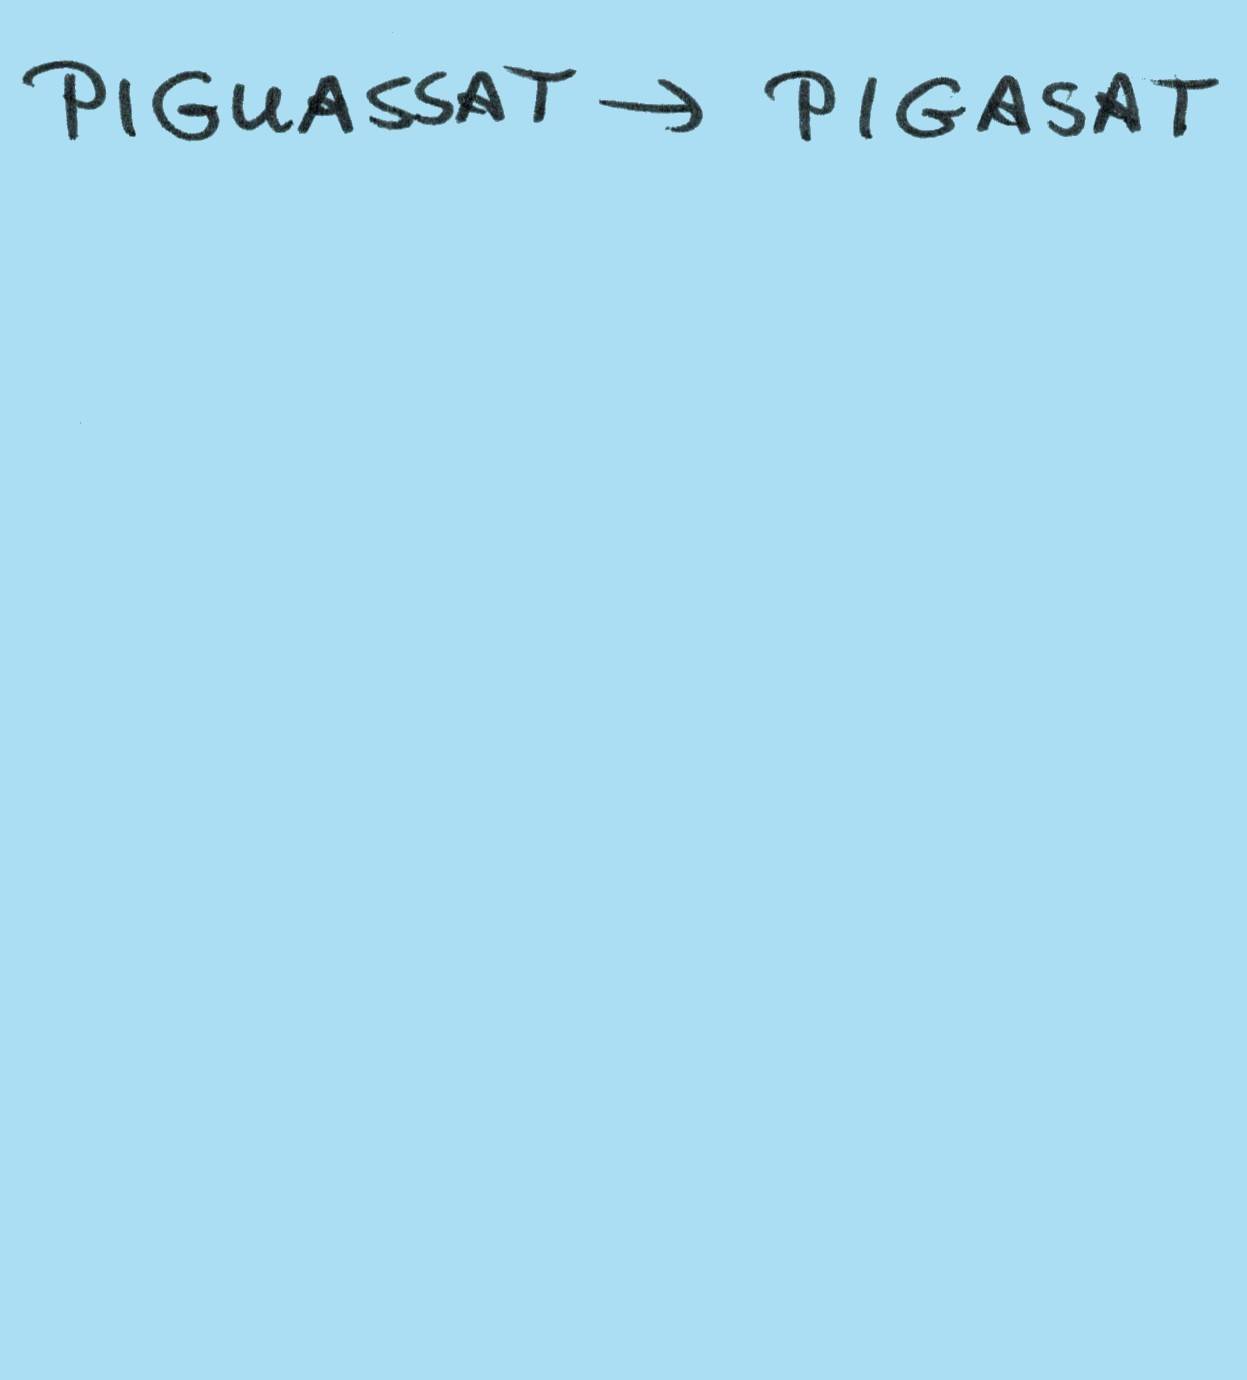 PIGUASSAT → PIGASAT